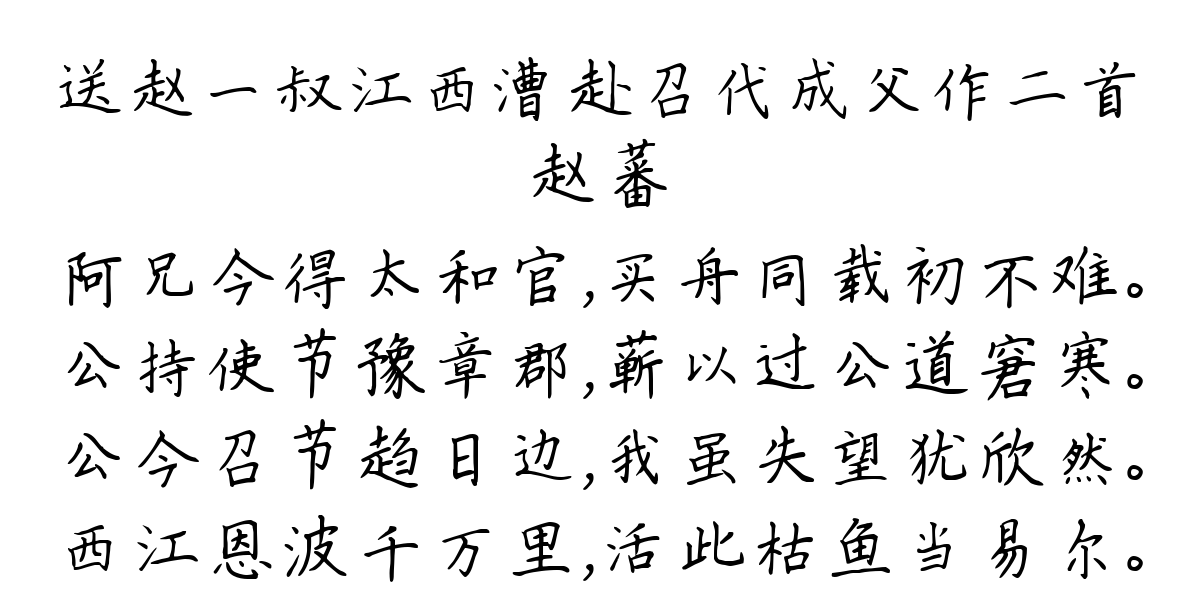 送赵一叔江西漕赴召代成父作二首
赵蕃
阿兄今得太和官,买舟同载初不难。
公持使节豫章郡,蕲以过公道窘寒。
公今召节趋日边,我虽失望犹欣然。
西江恩波千万里,活此枯鱼当易尔。